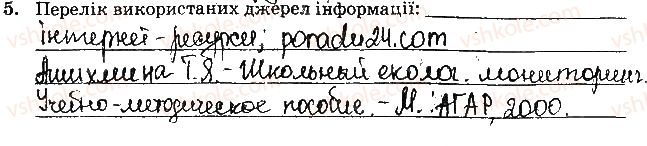 5. Перелік використаних джерел інформації:
інтернет-ресурси; poradu24.com
Ашихмина Т.Я. - Школьный еколог. мониторинг.
Учебно-методическое пособие. - М.: АГАР, 2000.